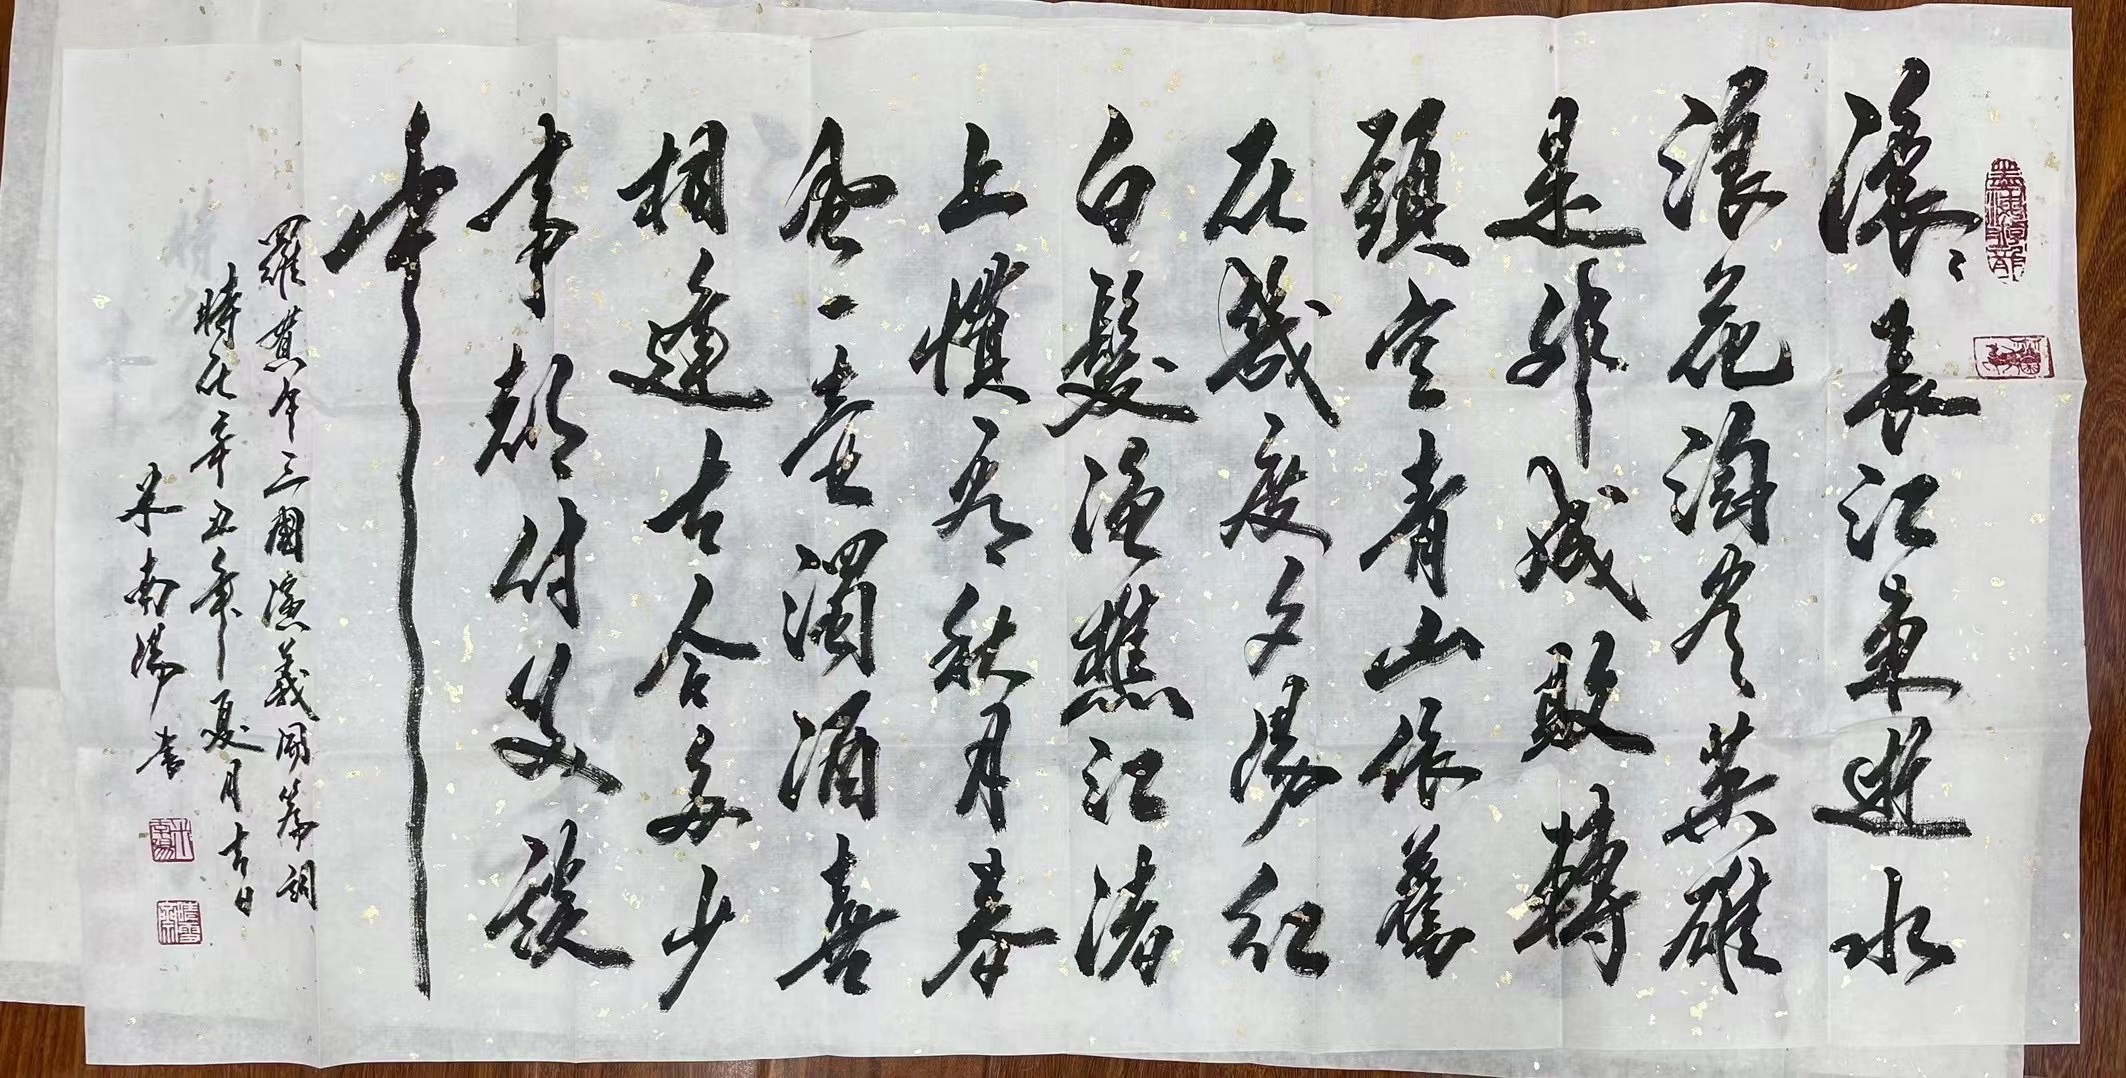 滚々長江東逝水
浪花淘盡英雄
是非成敗轉
頭空青山依舊
在幾度夕陽紅
白髮漁樵江渚
上慣看秋月春
風一壺濁酒喜
相逢古今多少
事都付笑談
中
羅贯中三國演義開篇詞
時在辛丑年夏月吉日
米南陽書